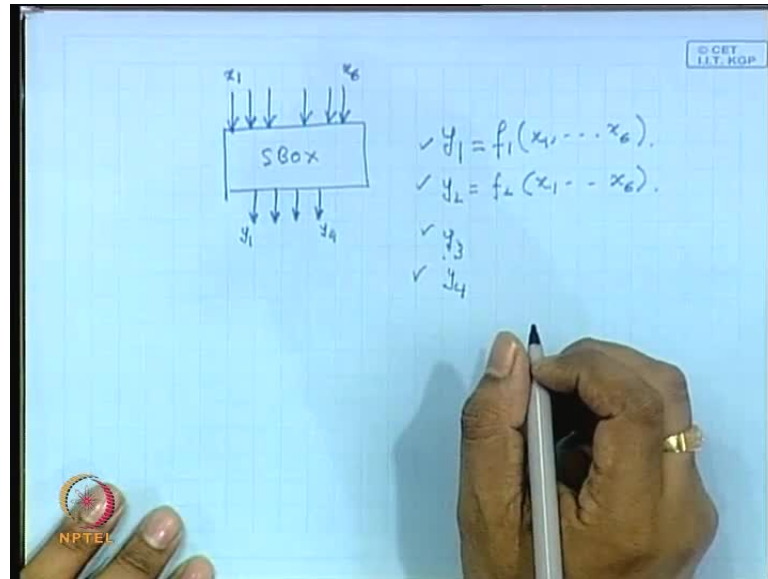 © CET
I.I.T. KGP
x₁ x₆
SBOX
y₁ y₄
✓ y₁ = f₁(x₁, --- x₆).
✓ y₂ = f₂ (x₁ - - x₆).
✓ y₃
✓ y₄
NPTEL